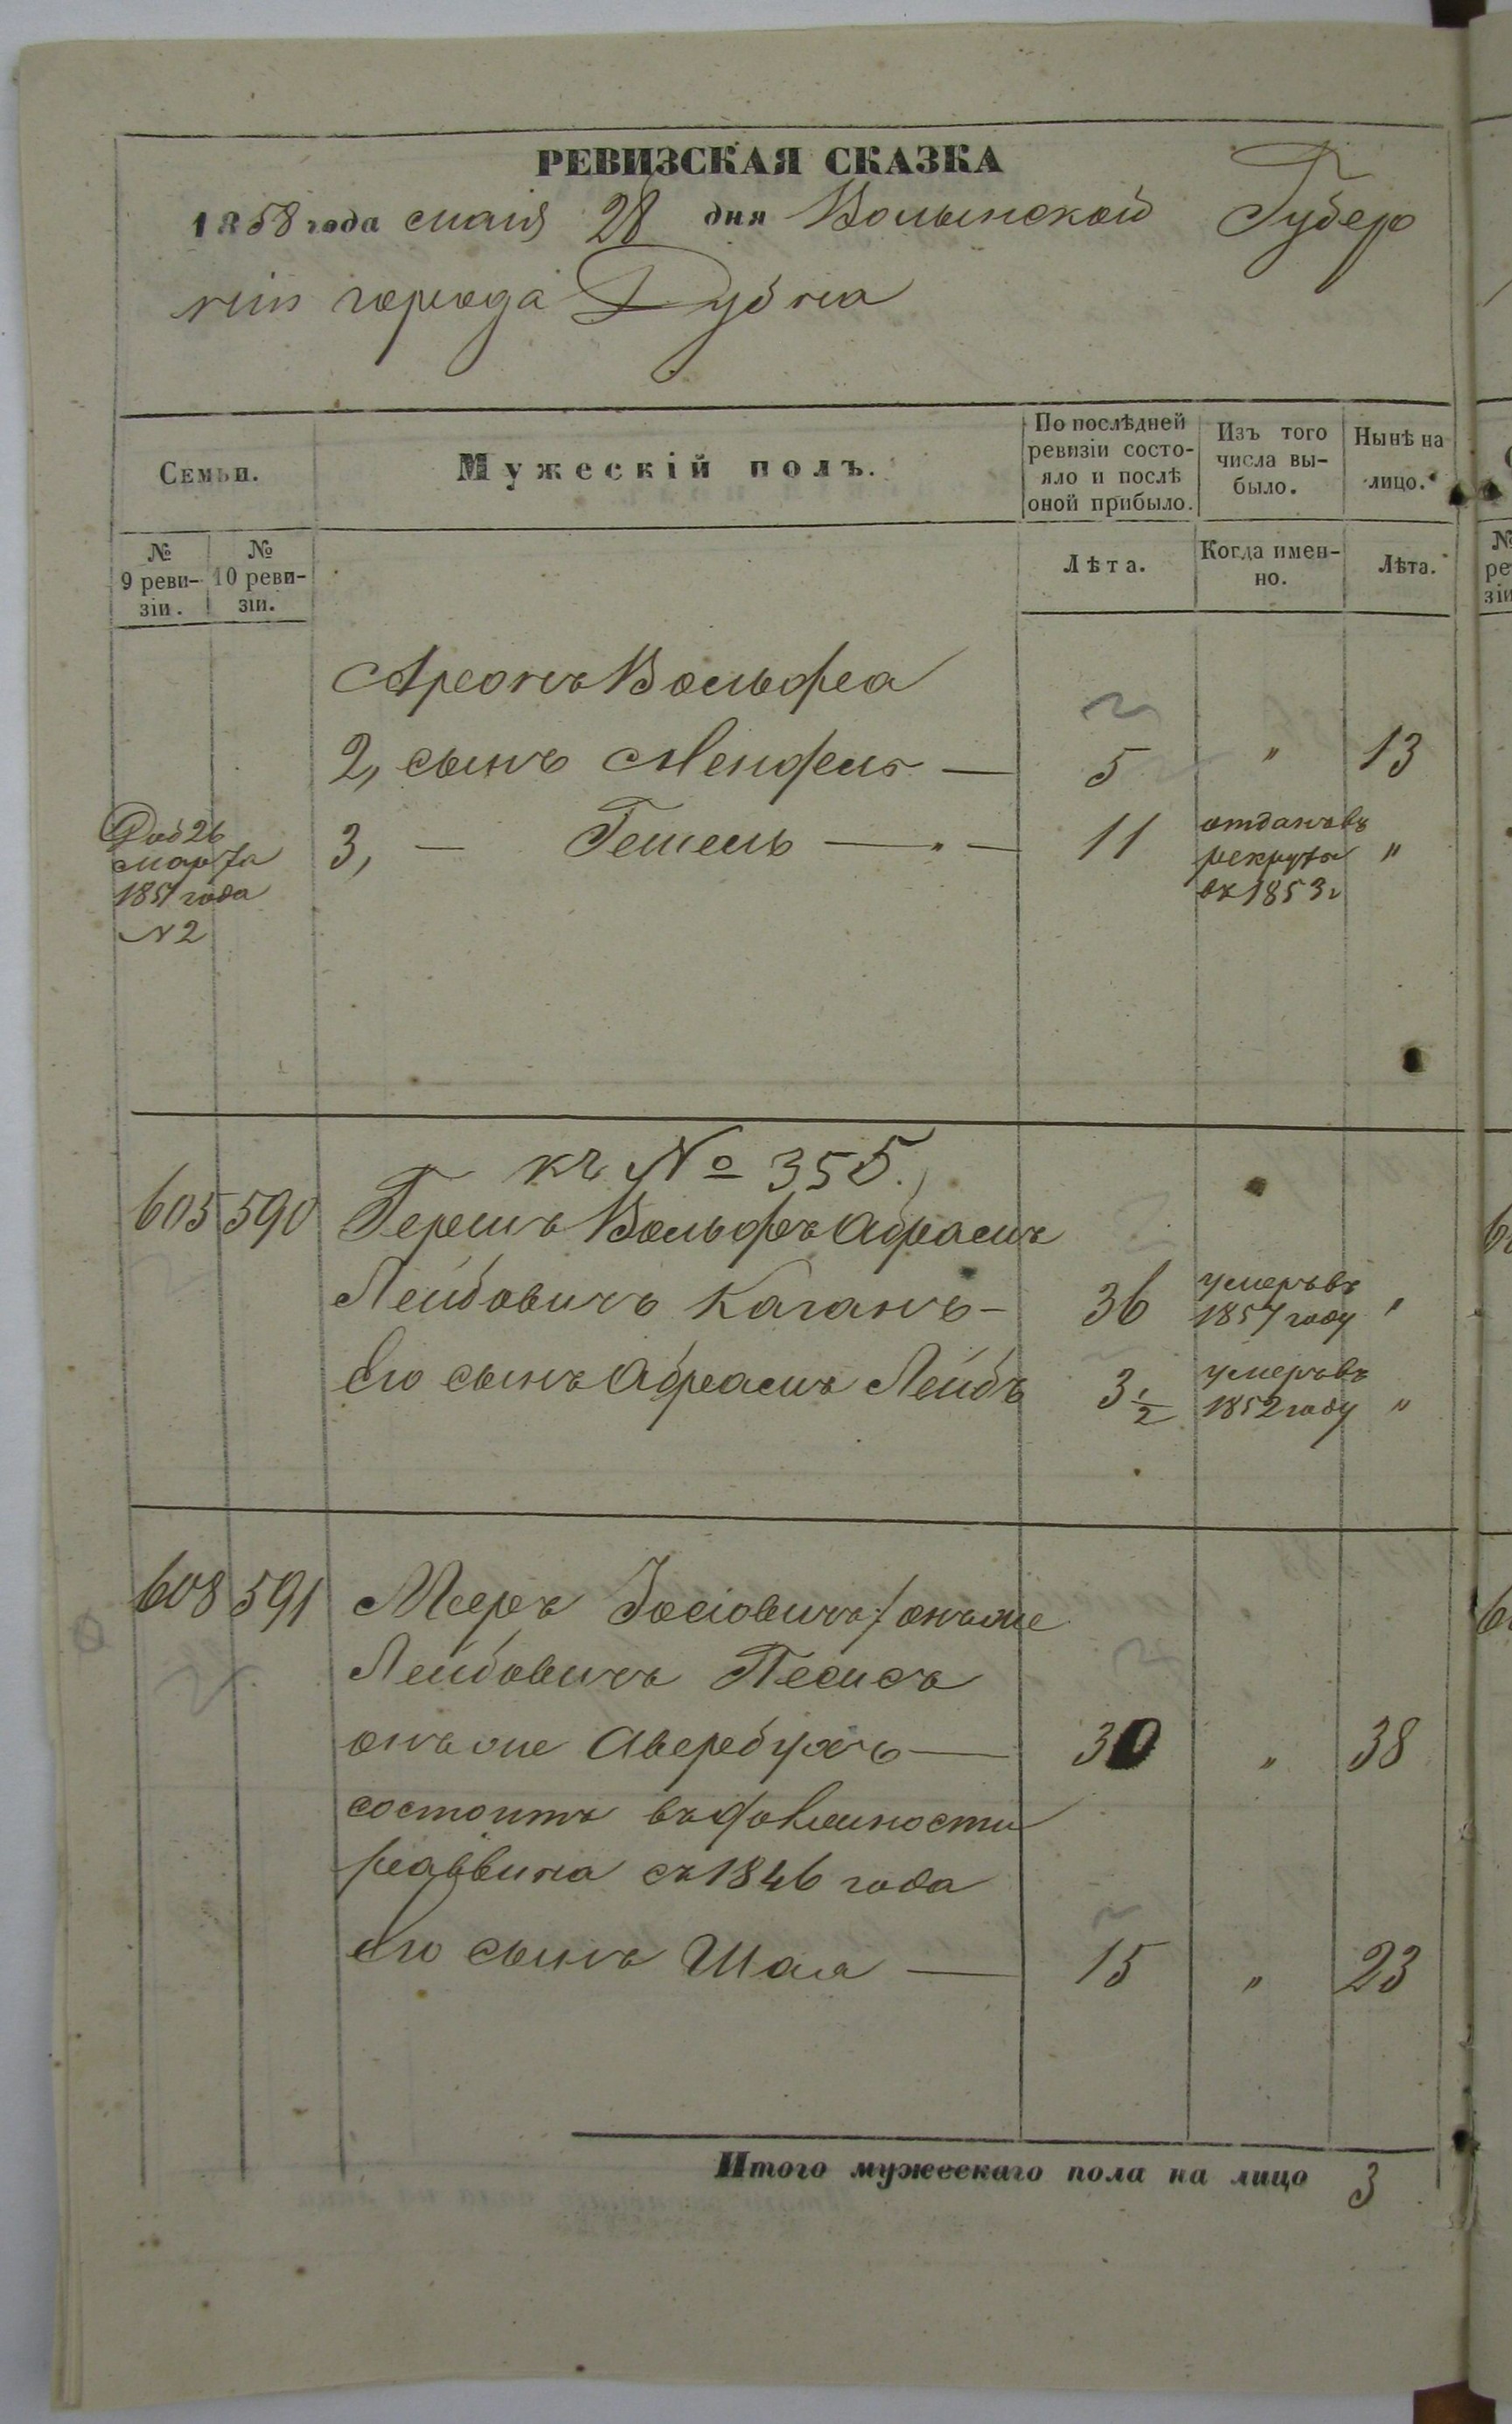 РЕВИЗСКАЯ СКАЗКА
1858 года маія 28 дня Волынской Губер
ніи города Дубна
Семьи.
Мужескій полъ.
По послѣдней ревизіи состо-
яло и послѣ
оной прибыло.
Изъ того
числа вы-
было.
Нынѣ на
лицо.
№
9 реви-
зіи.
№
10 реви-
зіи.
Лѣта.
Когда имен-
но.
Лѣта.
Аронъ Вольфа
2, сынъ Менфель — 5 " 13
Доб 26
марта
1851 года
N 2
3, — Гешель — " — 11
отданъ въ
рекруты
въ 1853 г
"
къ № 355.
605 590 Гершъ Вольфъ Абрамъ
Лейбовичъ Каганъ — 36 умеръ въ
1857 году "
Его сынъ Абрамъ Лейбъ 3 1/2 умеръ въ
1852 году "
608 591 Мееръ Іосіовичъ / онъ же
Лейбовичъ Песисъ
онъ же Авербухъ — 30 " 38
состоитъ въ должности
раввина съ 1846 года
Его сынъ Шая — 15 " 23
Итого мужескаго пола на лицо 3